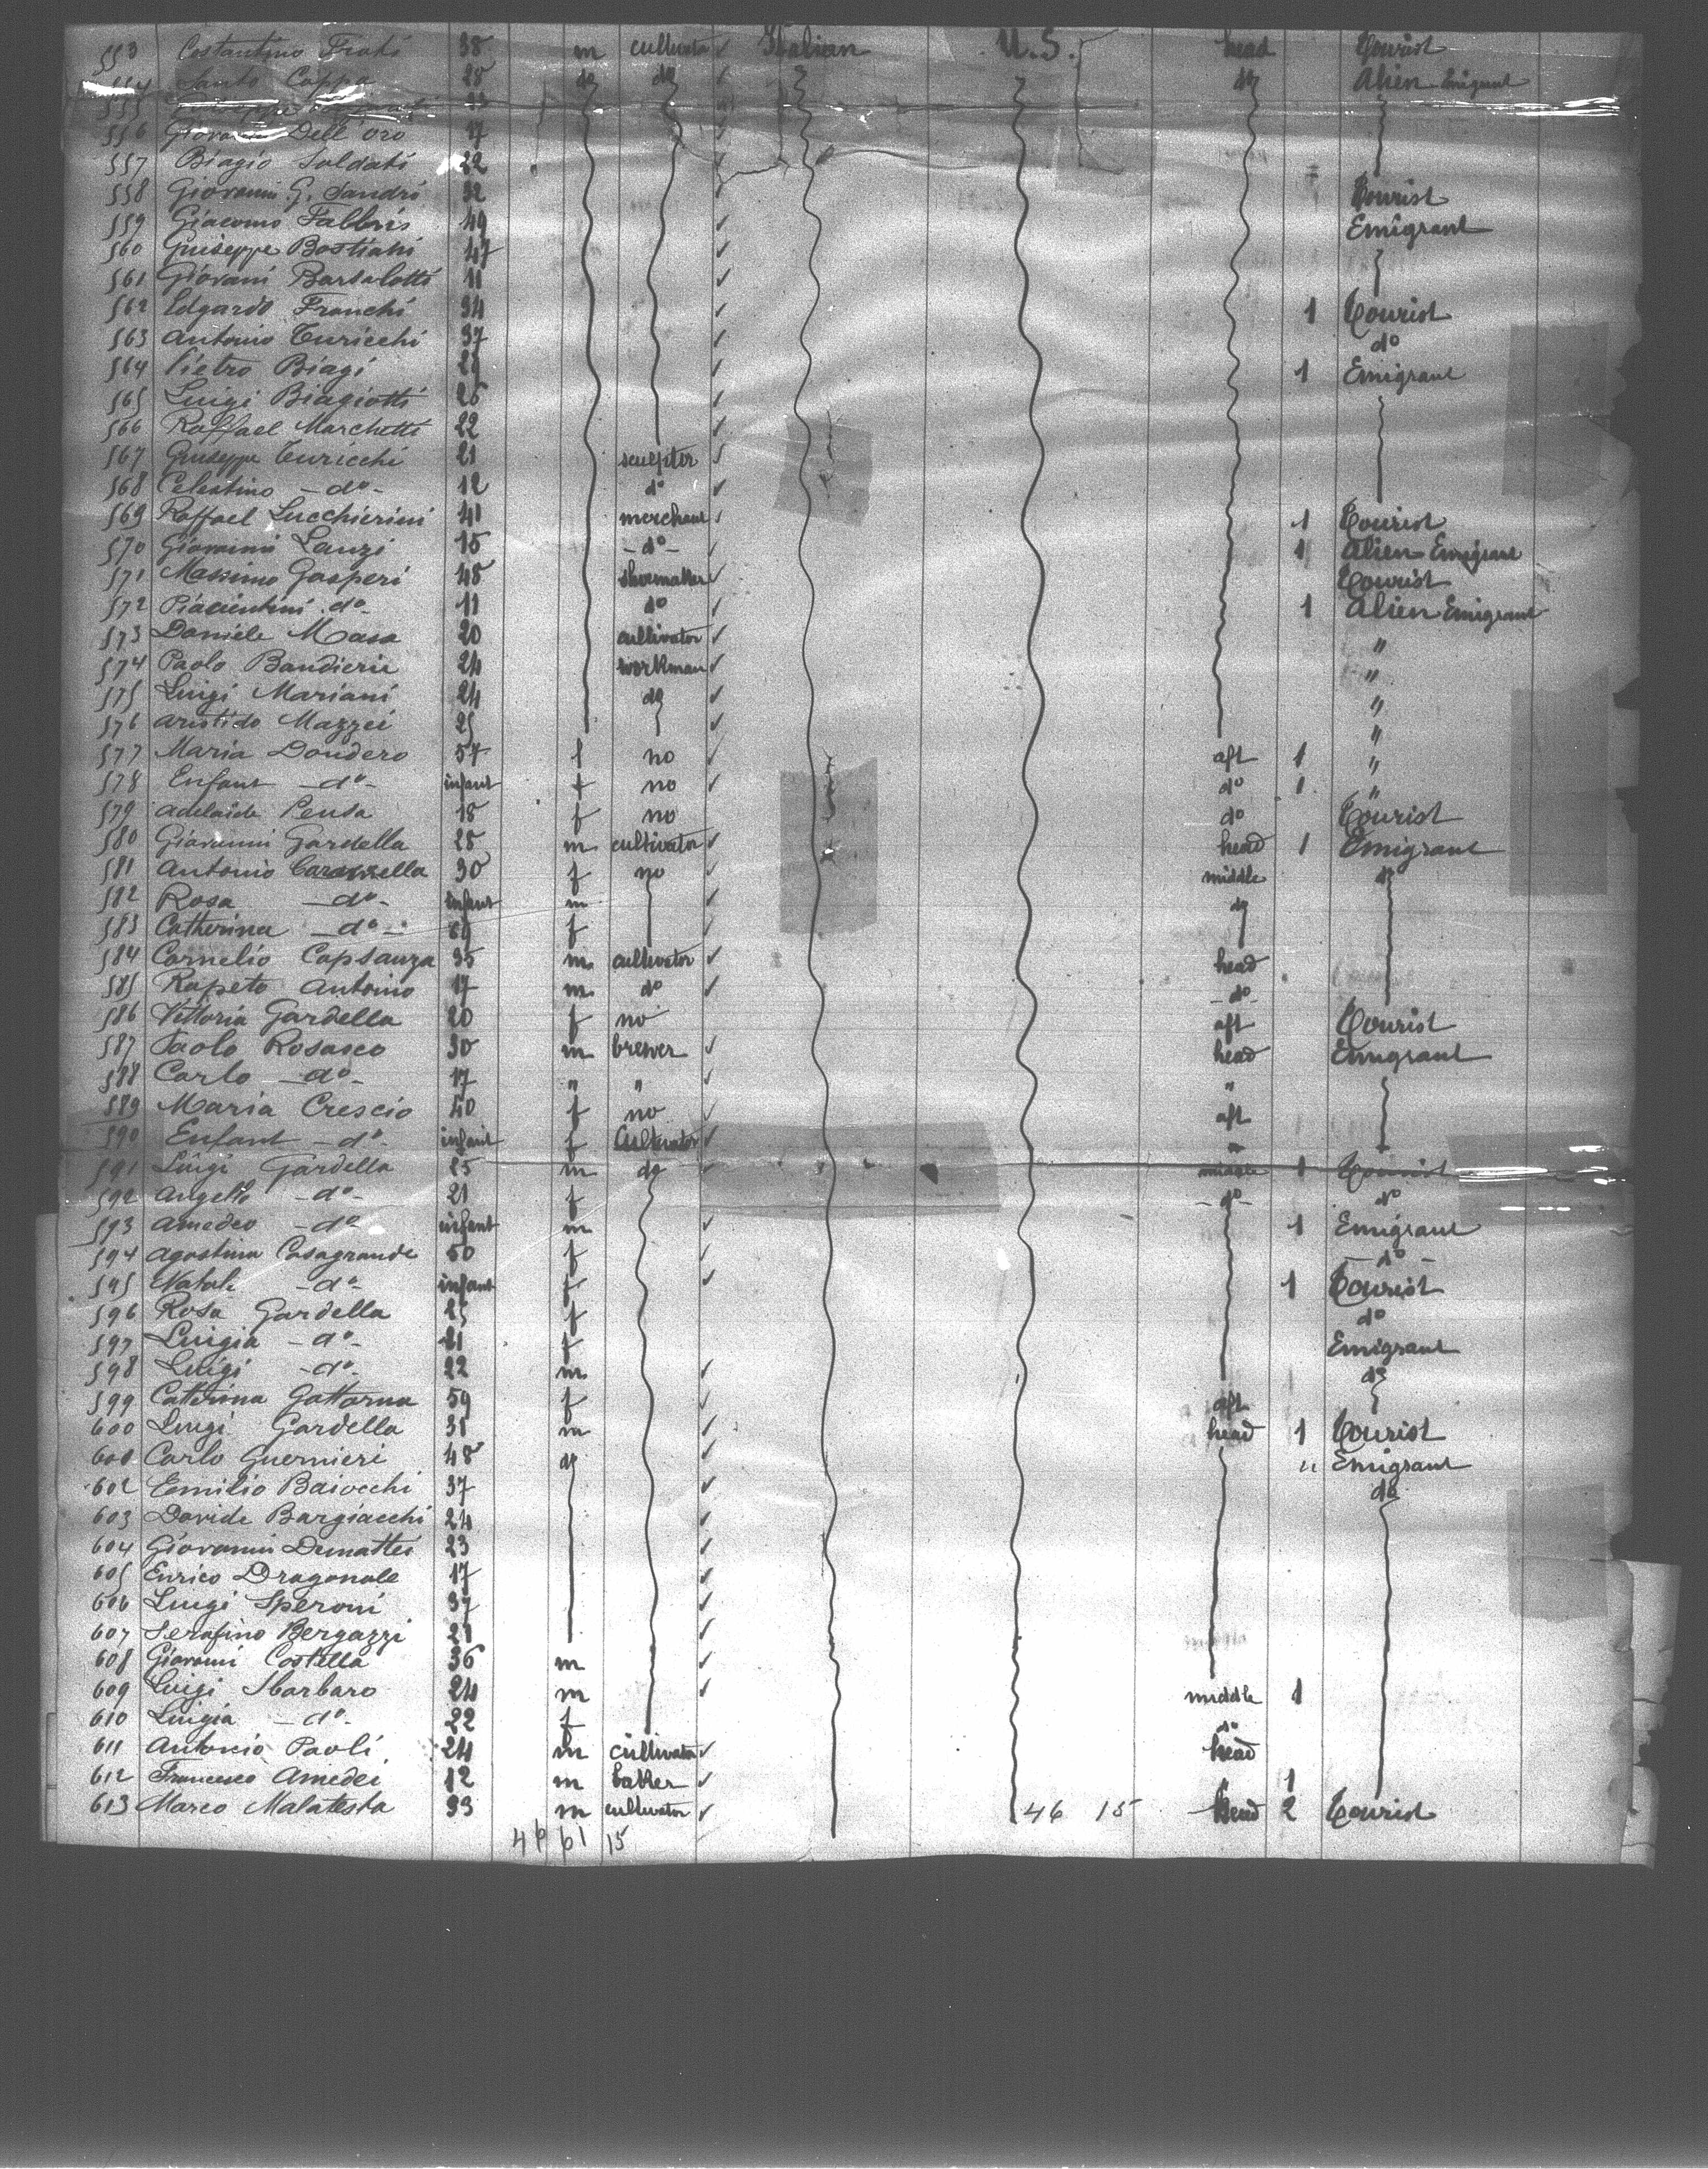 553 Costantino Frati 38 m cultivator ✓ Italian U.S. head Tourist
Santo Cappa 28 do do ✓ do Alien Emigrant
555
556 Giovanni Dell'oro 17
557 Biagio Soldati 22
558 Giovanni G. Sandri 32 ✓ Tourist
559 Giacomo Fabbris 49 ✓ Emigrant
560 Guiseppe Bastiani 47 ✓
561 Giovani Barsalotti 11 ✓
562 Edgardo Franchi 34 ✓ 1 Tourist
563 Antonio Turicchi 37 ✓ do
564 Pietro Biagi ✓ 1 Emigrant
565 Luigi Biagiotti 26 ✓
566 Raffael Marchetti 22 ✓
567 Giuseppe Turicchi 21 sculptor ✓
568 Celestino - do - 12 do ✓
569 Raffael Lucchierini 41 merchant ✓ 1 Tourist
570 Giovanni Lanzi 15 - do - ✓ 1 Alien Emigrant
571 Massimo Gasperi 48 shoemaker ✓ Tourist
572 Piacientini do - 11 do ✓ 1 Alien Emigrant
573 Daniele Masa 20 cultivator ✓ "
574 Paolo Bandierie 24 workman ✓ "
575 Luigi Mariani 24 do ✓ "
576 Aristido Mazzei 25 ✓ "
577 Maria Dondero 57 f no ✓ aft 1 "
578 Enfant - do - infant f no ✓ do 1 "
579 Adelaide Pensa 18 f no do Tourist
580 Giovanni Gardella 28 m cultivator ✓ head 1 Emigrant
581 Antonio 30 f no ✓ middle do
582 Rosa - do - infant m ✓ do
583 Catherina - do - f ✓
584 Cornelio Capsanza 35 m. cultivator ✓ head
585 Rapeto Antonio 17 m. do ✓ - do -
586 Vittoria Gardella 20 f no aft Tourist
587 Paolo Rosasco 30 m brewer ✓ head Emigrant
588 Carlo - do - 17 " " ✓ "
589 Maria Crescio 40 f no ✓ aft
590 Enfant - do - infant f Cultivator ✓
591 Luigi Gardella 25 m do ✓ middle 1 Tourist
592 Angela - do - 21 f - do - do
593 Amedeo - do - infant m ✓ 1 Emigrant
594 Agostina Casagrande 50 f ✓ - do -
595 Natale - do - infant f ✓ 1 Tourist
596 Rosa Gardella 25 f do
597 Luigia - do - 21 f Emigrant
598 Luigi - do - 22 m ✓ do
599 Catterina Gattorna 59 f ✓ aft
600 Luigi Gardella 38 m ✓ head 1 Tourist
601 Carlo Guernieri 48 do ✓ " Emigrant
602 Emilio Baiocchi 37 ✓ do
603 Davide Bargiacchi 24 ✓
604 Giovanni Demattei 23 ✓
605 Enrico Dragonale 17 ✓
606 Luigi Speroni 37 ✓
607 Serafino Bergazzi 21 ✓
608 Giovanni Costella 36 m ✓
609 Luigi Sbarbaro 24 m ✓ middle 1
610 Luigia - do - 22 f do
611 Antonio Paoli 24 m cultivator ✓ head
612 Francesco Amedei 12 m baker ✓ 1
613 Marco Malatesta 33 m cultivator ✓ 46 15 head 2 Tourist
46 61 15